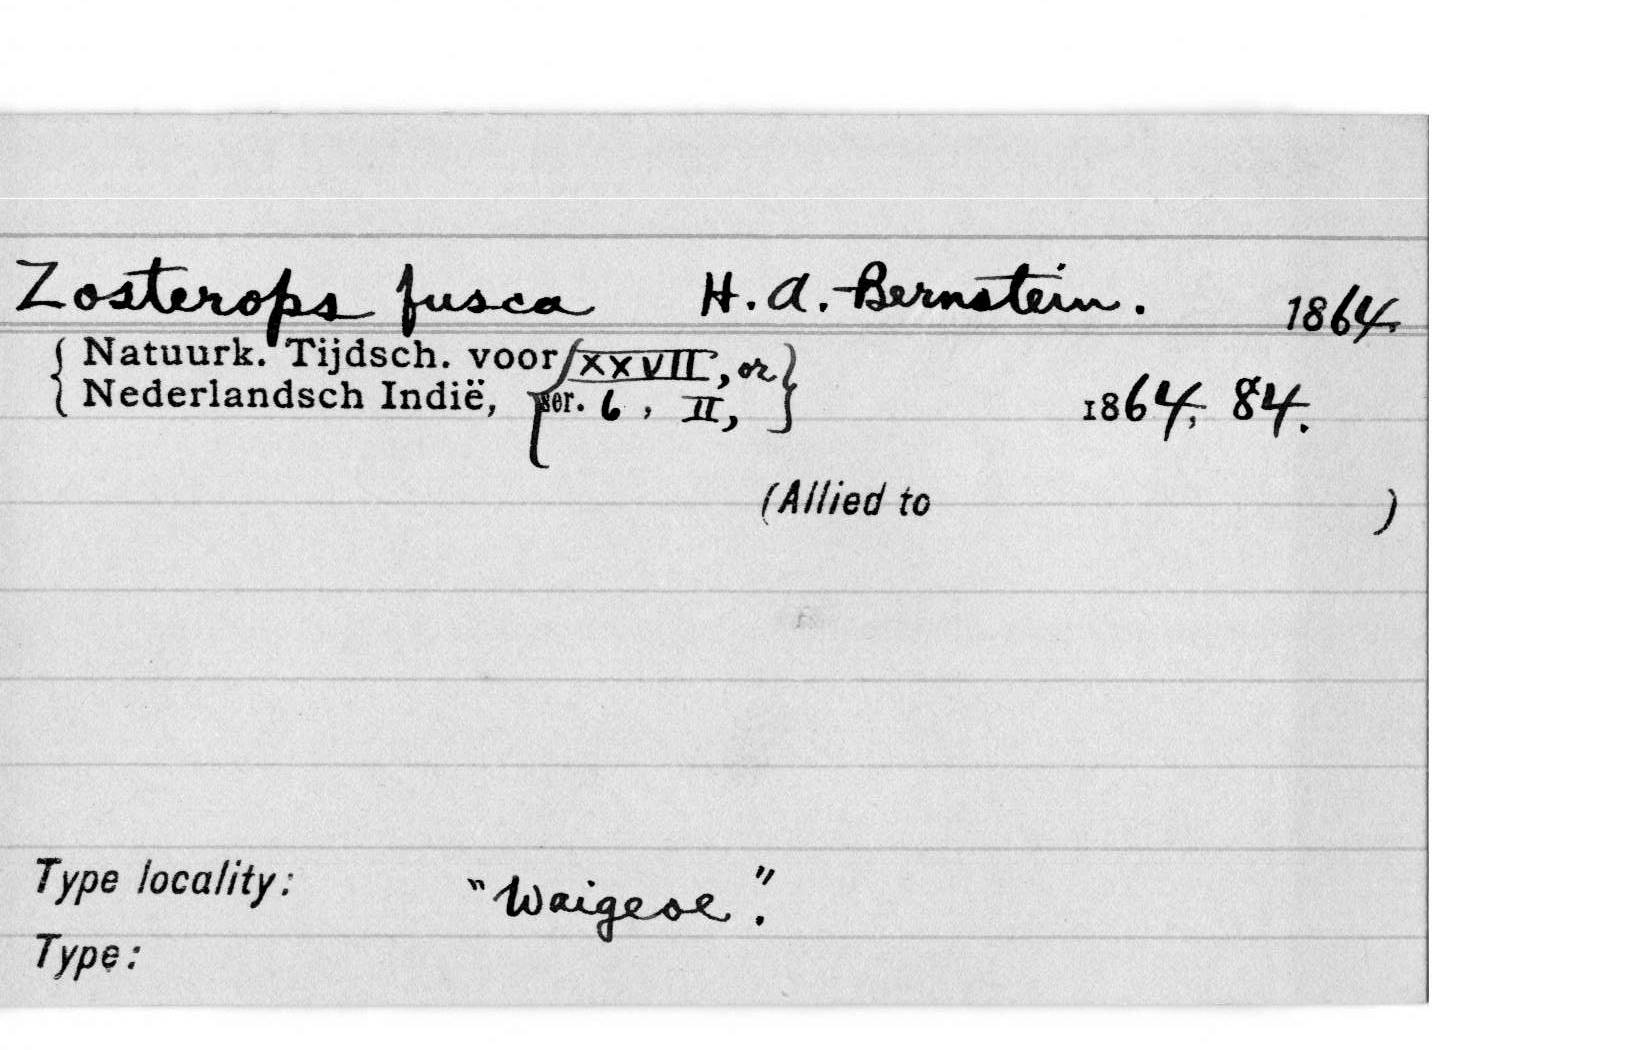 Zosterops fusca H. A. Bernstein. 1864.
{ Natuurk. Tijdsch. voor { XXVII, or }
{ Nederlandsch Indië, { ser. 6, II, } 1864, 84.
(Allied to )
Type locality: "Waigeoe".
Type: